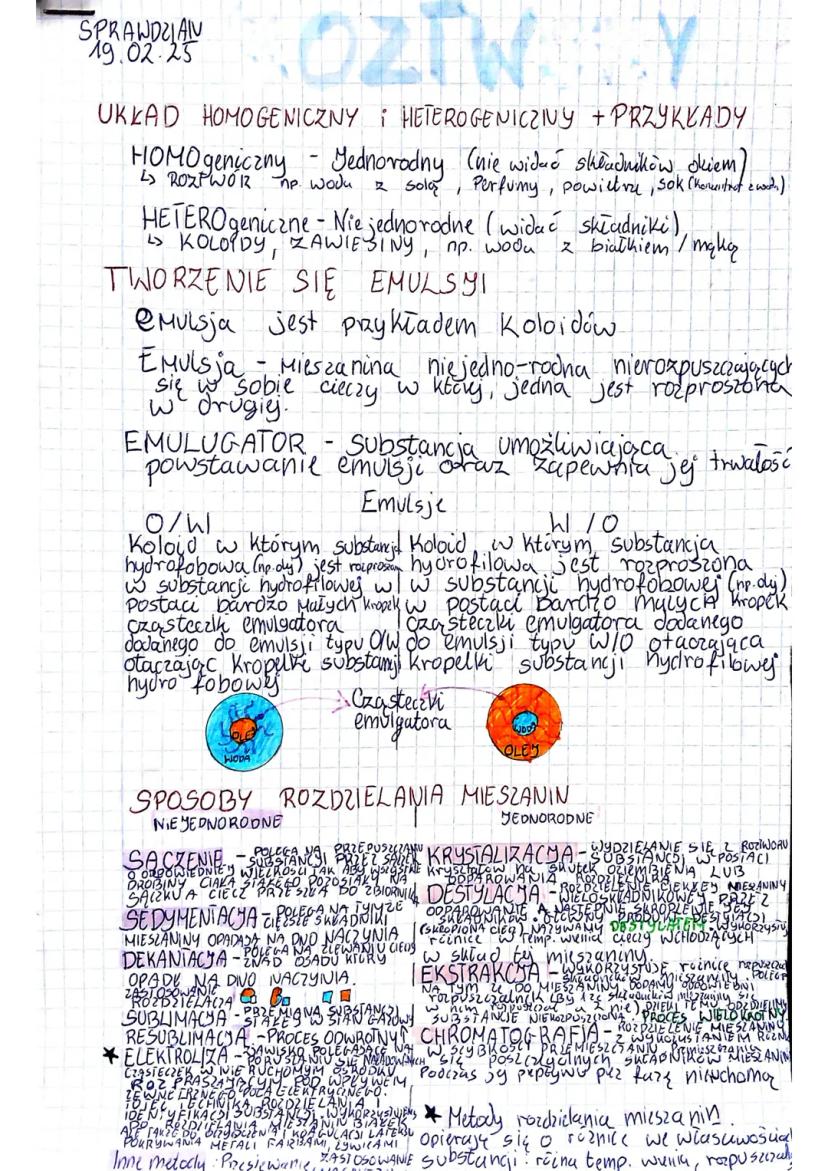 SPRAWDZIAN
19.02.25
UKŁAD HOMOGENICZNY i HETEROGENICZNY + PRZYKŁADY
HOMOgeniczny - Jednorodny (nie widać składników okiem)
↳ ROZTWÓR np. woda z solą, Perfumy, powietrze, sok (koncentrat z wodą)
HETEROgeniczne - Niejednorodne (widać składniki)
↳ KOLOIDY, ZAWIESINY, np. woda z białkiem / mąką
TWORZENIE SIĘ EMULSJI
emulsja jest przykładem Koloidów
Emulsja - Mieszanina niejedno-rodna nierozpuszczających
się w sobie cieczy w której, jedna jest rozproszona
w drugiej.
EMULUGATOR - Substancja umożliwiająca
powstawanie emulsji oraz zapewnia jej trwałość
Emulsje
O/W
Koloid w którym substancja
hydrofobowa (np. olej) jest rozproszona
w substancji hydrofilowej w
Postaci bardzo małych kropek
cząsteczki emulgatora
dodanego do emulsji typu O/W
otaczając kropelki substancji
hydrofobowej
W/O
Koloid w którym substancja
hydrofilowa jest rozproszona
w substancji hydrofobowej (np. olej)
w postaci bardzo małych kropek
cząsteczki emulgatora dodanego
do emulsji typu W/O otaczająca
kropelki substancji hydrofilowej
Cząsteczki
emulgatora
OLEJ
WODA
WODA
OLEJ
SPOSOBY ROZDZIELANIA MIESZANIN
NIEJEDNORODNE
SĄCZENIE - POLEGA NA PRZEPUSZCZANIU
SUBSTANCJI PRZEZ SĄCZEK
O ODPOWIEDNIEJ WIELKOŚCI TAK ABY WSZYSTKIE
DROBINY CIAŁA STAŁEGO POZOSTAŁY NA
SĄCZKU A CIECZ PRZESZŁA DO ZBIORNIKA
SEDYMENTACJA - POLEGA NA TYM ŻE
CIĘŻSZE SKŁADNIKI
MIESZANINY OPADAJĄ NA DNO NACZYNIA
DEKANTACJA - POLEGA NA ZLEWANIU CIECZY
ZNAD OSADU KTÓRY
OPADŁ NA DNO NACZYNIA.
SUBLIMACJA - PRZEMIANA SUBSTANCJI
STAŁEJ W STAN GAZOWY
RESUBLIMACJA - PROCES ODWROTNY
★ ELEKTROLIZA - ZJAWISKO POLEGAJĄCE NA
CZĄSTECZEK W NIERUCHOMYM OŚRODKU
ROZPRASZAJĄCYM POD WPŁYWEM
ZEWNĘTRZNEGO POLA ELEKTRYCZNEGO.
TECHNIKA ROZDZIELANIA I
IDENTYFIKACJI SUBSTANCJI
POKRYWANIA METALI FARBAMI, ŻYWICAMI
Inne metody: Przesiewanie, ZASTOSOWANIE
JEDNORODNE
KRYSTALIZACJA - WYDZIELANIE SIĘ Z ROZTWORU
SUBSTANCJI W POSTACI
kryształów na skutek oziębienia LUB
ODPAROWANIA ROZPUSZCZALNIKA
DESTYLACJA - ROZDZIELENIE CIEKŁEJ MIESZANINY
WIELOSKŁADNIKOWEJ PRZEZ
ODPAROWANIE A NASTĘPNIE SKROPLENIE JEJ
SKŁADNIKÓW. PRODUKT DESTYLACJI
(SKROPLONA CIECZ) NAZYWAMY DESTYLATEM - WYKORZYSTUJE
różnice w temp. wrzenia cieczy WCHODZĄCYCH
w skład tej mieszaniny
EKSTRAKCJA - WYKORZYSTUJE różnicę rozpuszcz
składników mieszaniny. POLEGA
NA TYM ŻE DO MIESZANINY DODAMY ODPOWIEDNI
SUBSTANCJE NIEROZPUSZCZONE. PROCES WIELOKROTNY.
CHROMATOGRAFIA - ROZDZIELENIE MIESZANINY
Z WYKORZYSTANIEM RÓŻNIC
W SZYBKOŚCI PRZEMIESZCZANIU
się POSZCZEGÓLNYCH SKŁADNIKÓW MIESZANINY
Podczas jej przepływu przez fazę nieruchomą
★ Metody rozdzielania mieszanin.
opierają się o różnice we właściwościach
substancji: różna temp. wrzenia, rozpuszczal